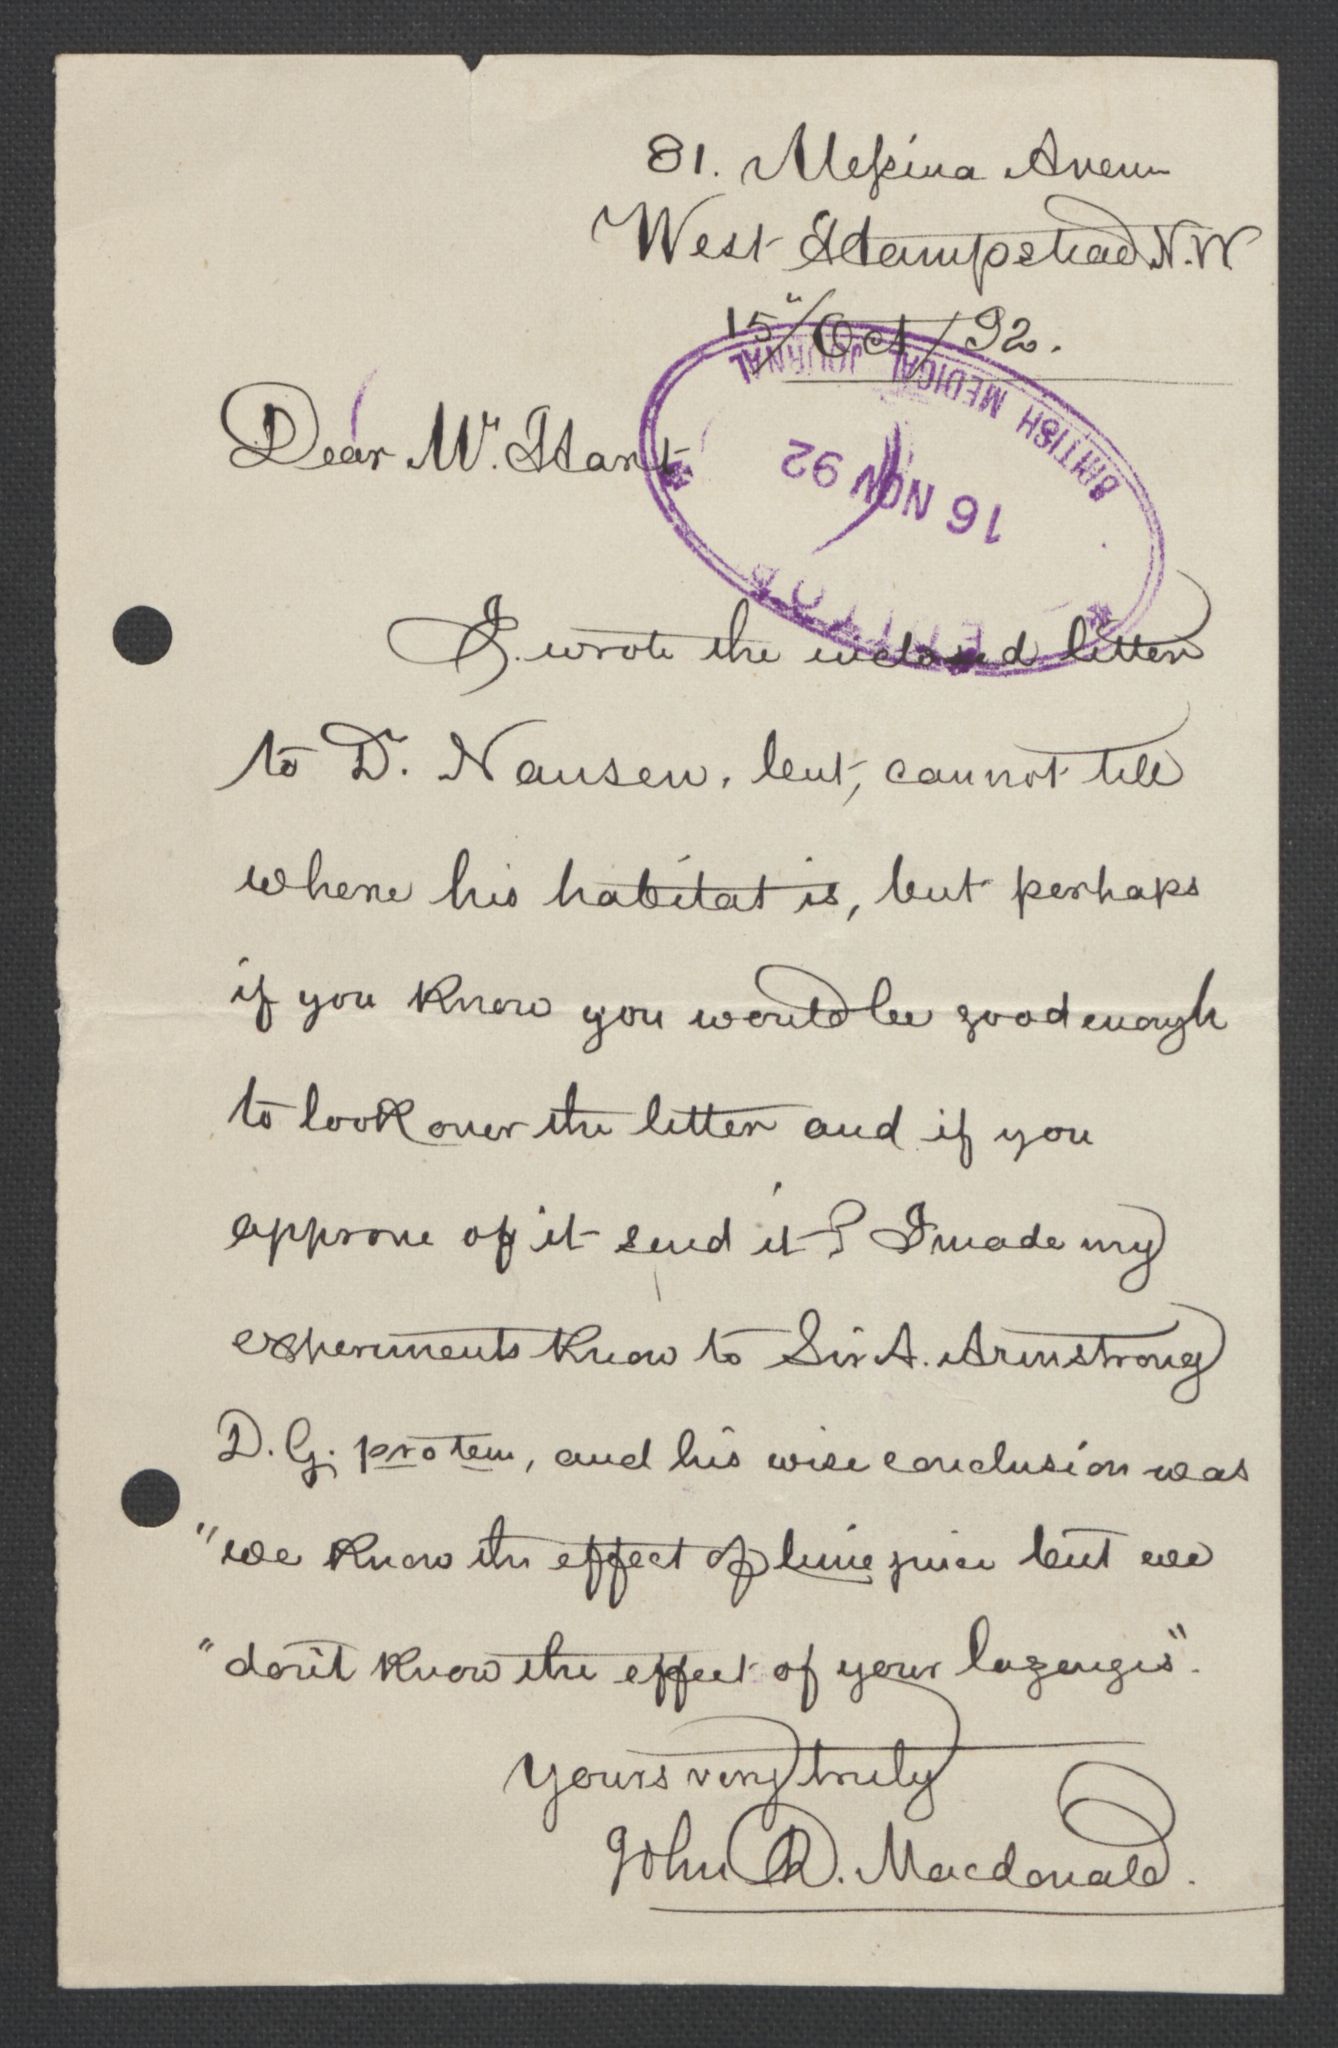 81. Messina Avenu
West Hampstead N.W
15"/Oct/92.
BRITISH MEDICAL JOURNAL
16 NOV 92
EDITOR
Dear Mr. Hart
I. wrote the inclosed letter
to Dr. Nansen, but, cannot tell
where his habitat is, but perhaps
if you know you would be good enough
to look over the letter and if you
approve of it send it? I made my
experiments know to Sir A. Armstrong
D.G. pro tem, and his wise conclusion was
"we know the effect of lime juice but we
"don't know the effect of your lozenges".
Yours very truly
John D. Macdonald.